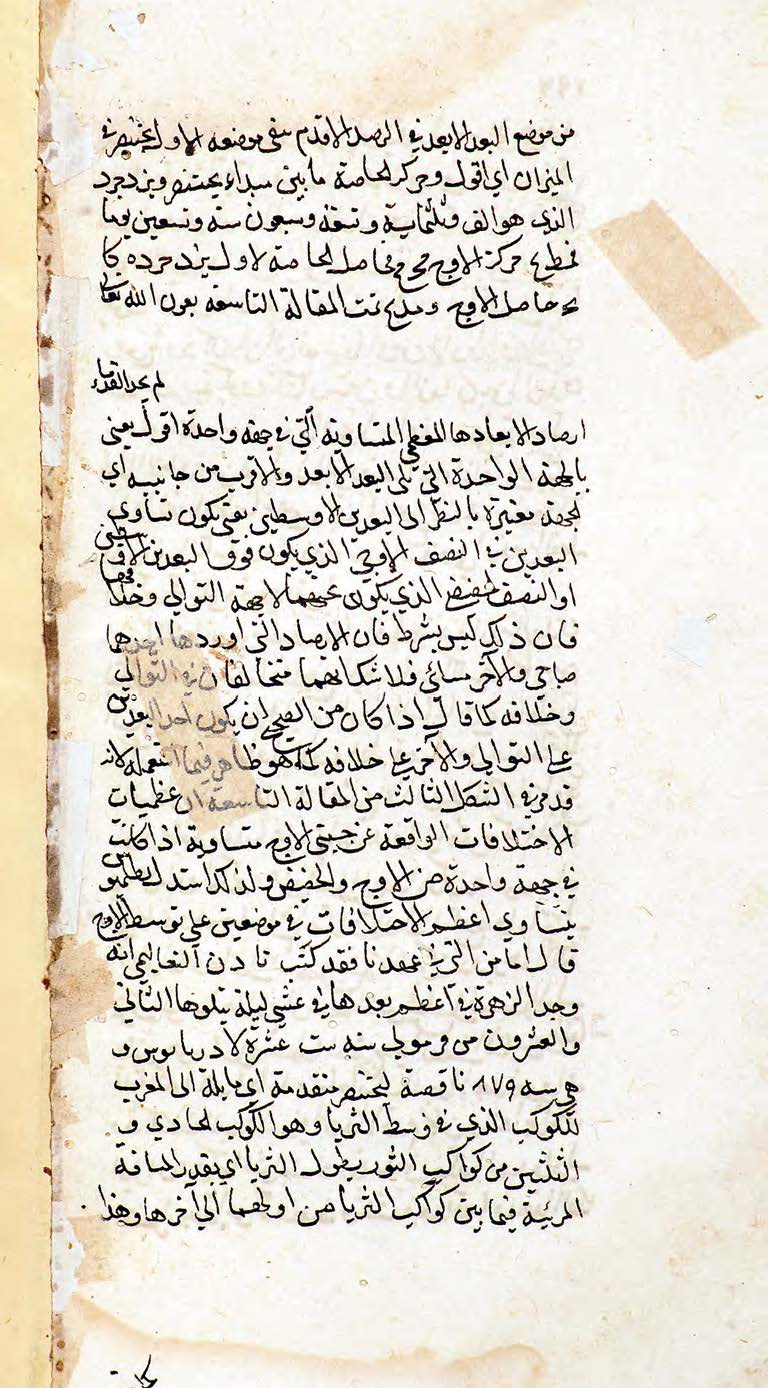 من موضع البعد الابعد في الرصد الاقدم يبقى موضعه الاول لبختنصر في
الميزان اي اقول وحركه الخاصة ما بين مبداء بختنصر ويزدجرد
الذى هو الف وثلثماية وتسعة وسبعون سنة وتسعين يوما
حركة الاوج حاصل الخاصة لاول يزدجرده كا
حاصل الاوج تمت المقالة التاسعة بعون الله تعالى
لم يجد القدماء
ارصاد الابعادها العظمى المتساوية التي في جهة واحدة اقول يعني
بالجهة الواحدة التي تلى البعد الابعد والاقرب من جانبيه اي
لجهة معتبرة بالنظر الى البعدين الاوسطين يعني يكون تساوي
البعدين في النصف الاوجي الذي يكون فوق البعدين الاوسطين
او النصف الحضيضي الذي يكون تحتهما لا جهة التوالي وخلافها
فان ذلك ليس بشرط فان الارصاد التي اوردها احدهما
صباحي والآخر مسائي فلا شك انهما متخالفان في التوالي
وخلافه كما قال اذا كان من الصبح ان يكون احد البعدين
على التوالي والآخر على خلافه كما هو ظاهر فيما استعمله لانه
قد مر في الشكل الثالث من المقالة التاسعة ان عظميات
الاختلافات الواقعة عن جنبتي الاوج متساوية اذا كانت
في جهة واحدة من الاوج والحضيض ولذلك استدل بطلميوس
بتساوي اعظم الاختلافات في موضعين على توسط الاوج
قال اما من التي في عهدنا فقد كتب تادن التعاليمي انه
وجد الزهرة في اعظم بعدها في عشي ليلة يتلوها الثاني
والعشرون من فرموثي سنه ست عشرة لادريانوس و
هي سه ٨٧٩ ناقصة لبختنصر متقدمة اي مايلة الى المغرب
للكوكب الذي في وسط الثريا وهو الكوكب الحادي و
الثلثين من كواكب الثور بطول الثريا اي بقدر المسافة
المرئية فيما بين كواكب الثريا من اولهما الى آخرها وهذا